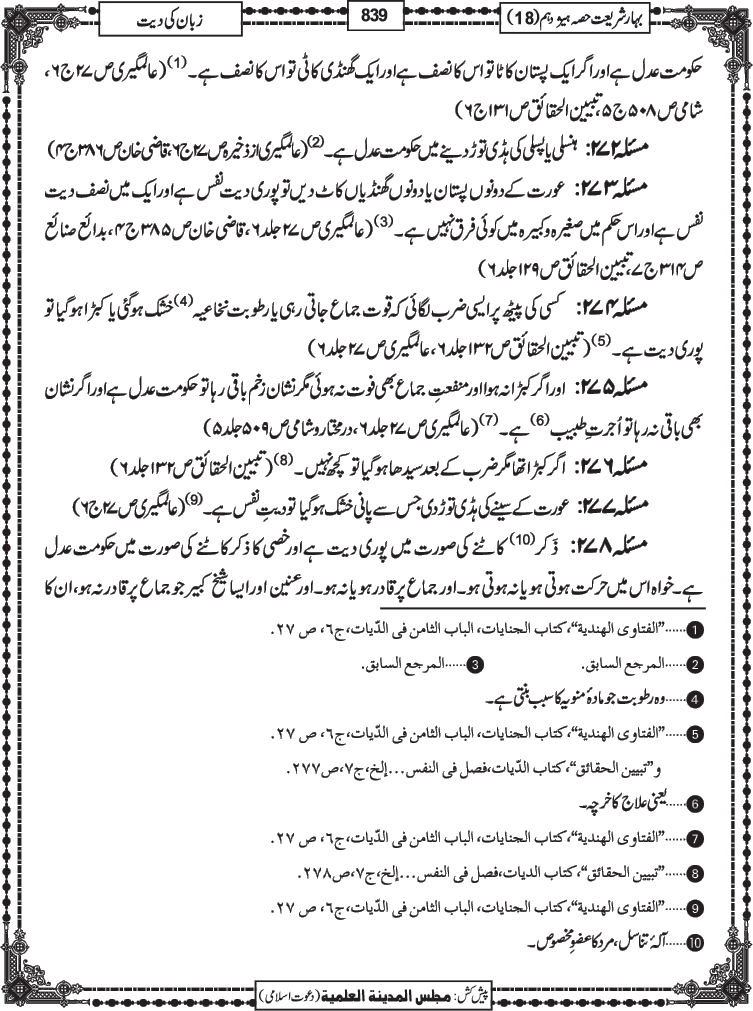 بہارِ شریعت حصہ ہیژدہم (18)
839
زبان کی دیت
حکومت عدل ہے اور اگر ایک پستان کاٹا تو اس کا نصف ہے اور ایک گھنڈی کاٹی تو اس کا نصف ہے۔ (1) (عالمگیری ص ۲۷ ج ۶،
شامی ص ۵۰۸ ج ۵، تبیین الحقائق ص ۱۳۱ ج ۶)
مسئلہ ۲۷۲: ہنسلی یا پسلی کی ہڈی توڑ دینے میں حکومت عدل ہے۔ (2) (عالمگیری از ذخیرہ ص ۲۷ ج ۶، قاضی خان ص ۳۸۶ ج ۴)
مسئلہ ۲۷۳: عورت کے دونوں پستان یا دونوں گھنڈیاں کاٹ دیں تو پوری دیت نفس ہے اور ایک میں نصف دیت
نفس ہے اور اس حکم میں صغیرہ و کبیرہ میں کوئی فرق نہیں ہے۔ (3) (عالمگیری ص ۲۷ جلد ۶، قاضی خان ص ۳۸۵ ج ۴، بدائع صنائع
ص ۳۱۴ ج ۷، تبیین الحقائق ص ۱۲۹ جلد ۶)
مسئلہ ۲۷۴: کسی کی پیٹھ پر ایسی ضرب لگائی کہ قوت جماع جاتی رہی یا رطوبت نخاعیہ (4) خشک ہوگئی یا کبڑا ہوگیا تو
پوری دیت ہے۔ (5) (تبیین الحقائق ص ۱۳۲ جلد ۶، عالمگیری ص ۲۷ جلد ۶)
مسئلہ ۲۷۵: اور اگر کبڑا نہ ہوا اور منفعتِ جماع بھی فوت نہ ہوئی مگر نشان زخم باقی رہا تو حکومت عدل ہے اور اگر نشان
بھی باقی نہ رہا تو اُجرتِ طبیب (6) ہے۔ (7) (عالمگیری ص ۲۷ جلد ۶، درمختار و شامی ص ۵۰۹ جلد ۵)
مسئلہ ۲۷۶: اگر کبڑا تھا مگر ضرب کے بعد سیدھا ہوگیا تو کچھ نہیں۔ (8) (تبیین الحقائق ص ۱۳۲ جلد ۶)
مسئلہ ۲۷۷: عورت کے سینے کی ہڈی توڑ دی جس سے پانی خشک ہوگیا تو دیتِ نفس ہے۔ (9) (عالمگیری ص ۲۷ ج ۶)
مسئلہ ۲۷۸: ذَکر (10) کاٹنے کی صورت میں پوری دیت ہے اور خصی کا ذکر کاٹنے کی صورت میں حکومت عدل
ہے۔ خواہ اس میں حرکت ہوتی ہو یا نہ ہوتی ہو۔ اور جماع پر قادر ہو یا نہ ہو۔ اور عنین اور ایسا شیخ کبیر جو جماع پر قادر نہ ہو، ان کا
1 ......"الفتاوی الهندية"، كتاب الجنايات، الباب الثامن فى الدّيات، ج۶، ص ۲۷.
2 ......المرجع السابق. 3 ......المرجع السابق.
4 ......وہ رطوبت جو مادۂ منویہ کا سبب بنتی ہے۔
5 ......"الفتاوی الهندية"، كتاب الجنايات، الباب الثامن فى الدّيات، ج۶، ص ۲۷.
و"تبيين الحقائق"، كتاب الدّيات، فصل فى النفس...إلخ، ج۷، ص۲۷۷.
6 ......یعنی علاج کا خرچہ۔
7 ......"الفتاوی الهندية"، كتاب الجنايات، الباب الثامن فى الدّيات، ج۶، ص ۲۷.
8 ......"تبيين الحقائق"، كتاب الديات، فصل فى النفس...إلخ، ج۷، ص۲۷۸.
9 ......"الفتاوی الهندية"، كتاب الجنايات، الباب الثامن فى الدّيات، ج۶، ص ۲۷.
10 ......آلۂ تناسل، مرد کا عضوِ مخصوص۔
پیش کش: مجلس المدینة العلمية (دعوت اسلامی)